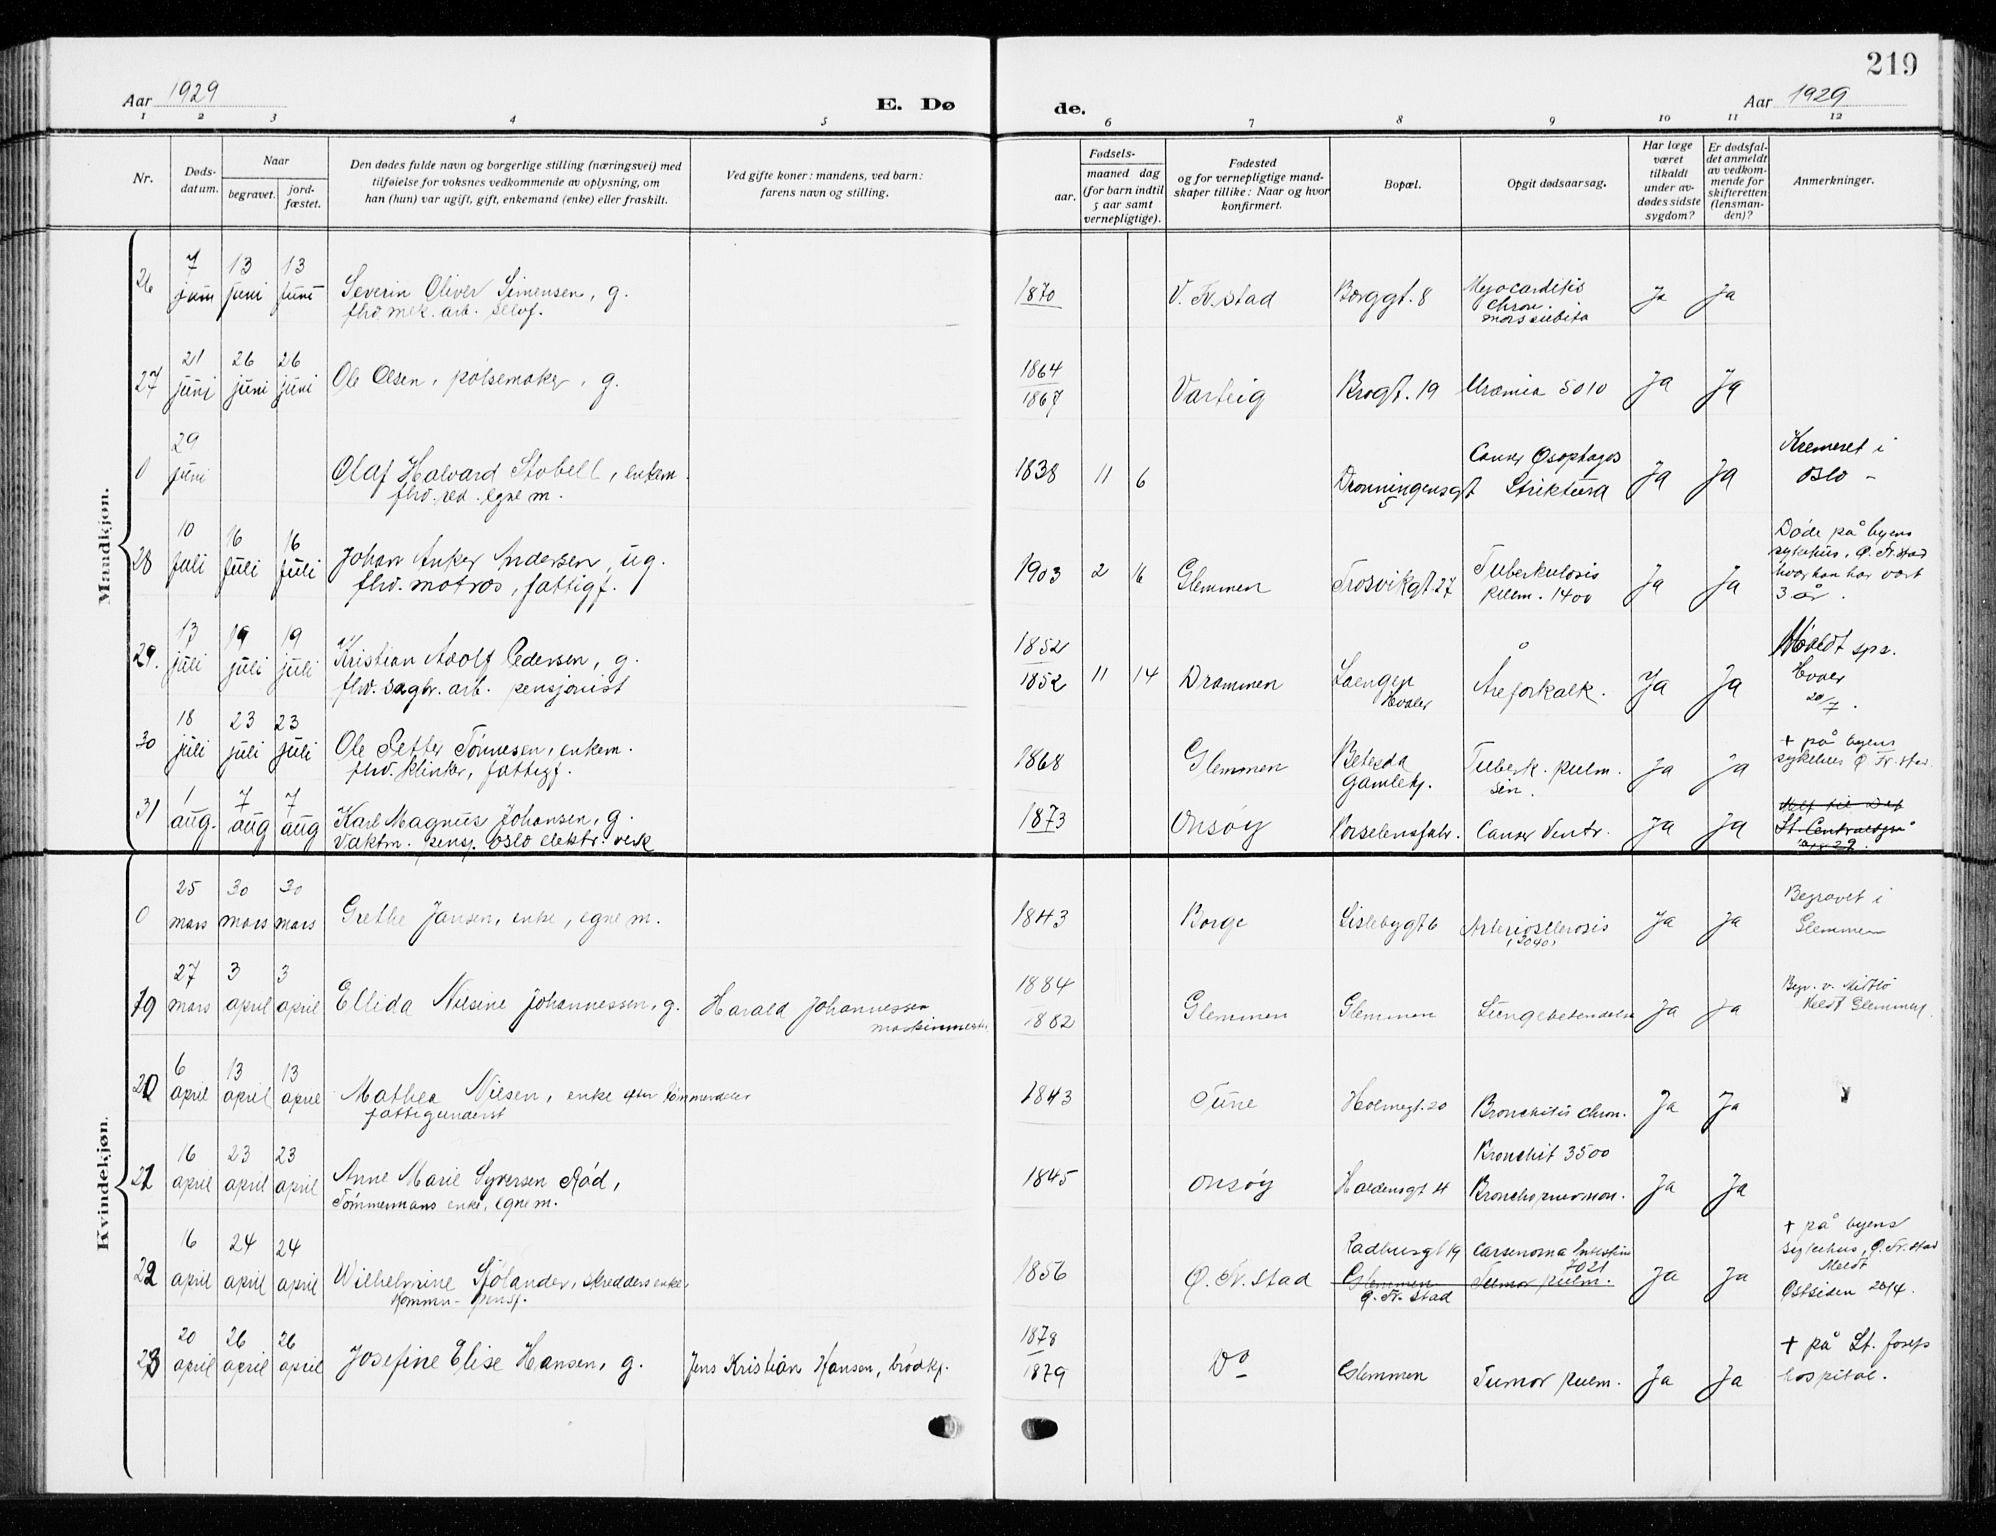 219
Aar 1929
E. Dø
de.
Aar 1929
1 2 3 4 5 6 7 8 9 10 11 12
Nr.
Døds-
datum.
Naar
begravet.
jord-
fæstet.
Den dødes fulde navn og borgerlige stilling (næringsvei) med
tilføielse for voksnes vedkommende av oplysning, om
han (hun) var ugift, gift, enkemand (enke) eller fraskilt.
Ved gifte koner: mandens, ved barn:
farens navn og stilling.
Fødsels-
aar.
maaned dag
(for barn indtil
5 aar samt
vernepligtige).
Fødested
og for vernepligtige mand-
skaper tillike: Naar og hvor
konfirmert.
Bopæl.
Opgit dødsaarsag.
Har læge
været
tilkaldt
under av-
dødes sidste
sygdom?
Er dødsfal-
det anmeldt
av vedkom-
mende for
skifteretten
(lensman-
den)?
Anmerkninger.
Mandkjøn.
26
7 juni
13 juni
13 juni
Severin Oliver Simensen, g.
fhv. mek. arb. selvf.
1870
V. Fr.stad
Borggt. 8
Myocarditis
chron.
mors subita
Ja
Ja
27
21 juni
26 juni
26 juni
Ole Olsen, pølsemaker, g.
1864
1867
Varteig
Brogt. 19
Uræmia 5010
Ja
Ja
0
29 juni
Olaf Halvard Stobell, enkem.
fhv. red. egne m.
1838
11
6
Dronningensgt
5
Cancer Osophagos
Striktura
Ja
Ja
Kremeret i
Oslo -
28
10 juli
16 juli
16 juli
Johan Anker Andersen, ug.
fhv. matros, fattigf.
1903
2
16
Glemmen
Trosvikgt. 27
Tuberkulosis
pulm. 1400
Ja
Ja
Døde på byens
sykehus, Ø. Fr.stad
hvor han har vært
3 år.
29.
13 juli
19 juli
19 juli
Kristian Adolf Pedersen, g.
fhv. sagbr. arb. pensjonist
1852
1852
11
14
Drammen
Hvaler
Åreforkalk.
Ja
Ja
Meldt spr.
Hvaler
20/7.
30
18 juli
23 juli
23 juli
Ole Petter Tønnesen, enkem.
fhv. klinker, fattigf.
1868
Glemmen
Betesda
Gamlehj.
Tuberk. pulm.
sin.
Ja
Ja
+ på byens
sykehus Ø. Fr.stad.
31
1 aug.
7 aug
7 aug
Karl Magnus Johansen, g.
Vaktm. pensj. Oslo elektr. verk
1873
Onsøy
Porselensfabr.
Cancer Ventr.
Ja
Ja
Kvindekjøn.
0
25 mars
30 mars
30 mars
Grethe Jansen, enke, egne m.
1843
Borge
Lislebygt 6
Arteriosklerosis
(3040)
Ja
Ja
Begravet i
Glemmen
19
27 mars
3 april
3 april
Ellida Nilsine Johannessen, g.
Harald Johannessen
maskinmester
1884
1882
Glemmen
Glemmen
Lungebetendelse
Ja
Ja
Begr. v.
Meldt Glemmen.
20
6 april
13 april
13 april
Mathea Nilsen, enke efter tømmerdeler
fattigunderst
1843
Tune
Holmegt. 20
Bronchitis chron.
Ja
Ja
21
16 april
23 april
23 april
Anne Marie Syversen Rød,
Tømmermans enke, egne m.
1845
Onsøy
Haldensgt 4
Bronchit 3500
Bronchopneumon.
Ja
Ja
22
16 april
24 april
24 april
Wilhelmine Sjölander, skredders enke,
Kommu- pensj.
1856
Ø. Fr. stad
Radhusgt 19
Glemmen
Ø. Fr. stad
Carsenoma Intestin
7021
Tumor pulm.
Ja
Ja
+ på byens
sykehus, Ø. Fr. stad
Meldt
Østsiden 26/4.
23
20 april
26 april
26 april
Josefine Elise Hansen, g.
Jens Kristian Hansen, brødkj.
1878
1879
Do
Glemmen
Tumor pulm.
Ja
Ja
+ på St. Josefs
hospital.